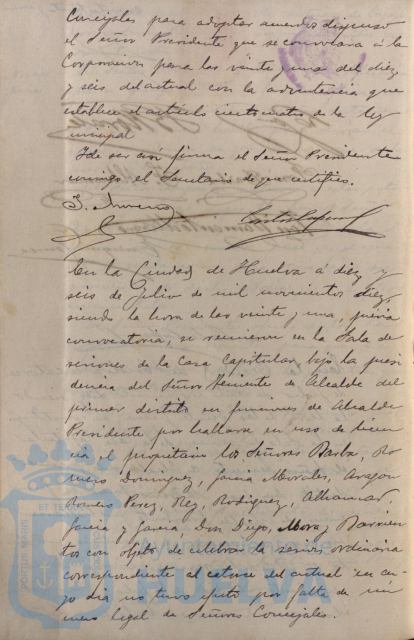 Concejales para adoptar acuerdos dispuso
el Señor Presidente que se convocara á la
Corporacion para las veinte y una del diez
y seis del actual con la advertencia que
establece el artículo ciento cuatro de la ley
municipal
Y de ser asi firma el Señor Presidente
conmigo el Secretario de que certifico.
J. Moreno
En la Ciudad de Huelva á diez y
seis de Julio de mil novecientos diez,
siendo la hora de las veinte y una, previa
convocatoria, se reunieron en la Sala de
sesiones de la Casa Capitular, bajo la presi
dencia del Señor Teniente de Alcalde del
primer distrito en funciones de Alcalde
Presidente por hallarse en uso de licen
cia el propietario los Señores Barba, Ro
mero Dominguez, Garcia Morales, Aragon
Romero Perez, Rey, Rodriguez, Alhamar,
Garcia y Garcia Don Diego, Mora y Barrien
tos con objeto de celebrar la sesion ordinaria
correspondiente al catorce del actual en cu
yo dia no tuvo efecto por falta de nú
mero legal de Señores Concejales.
PORTUS MARIS ET TERRAE